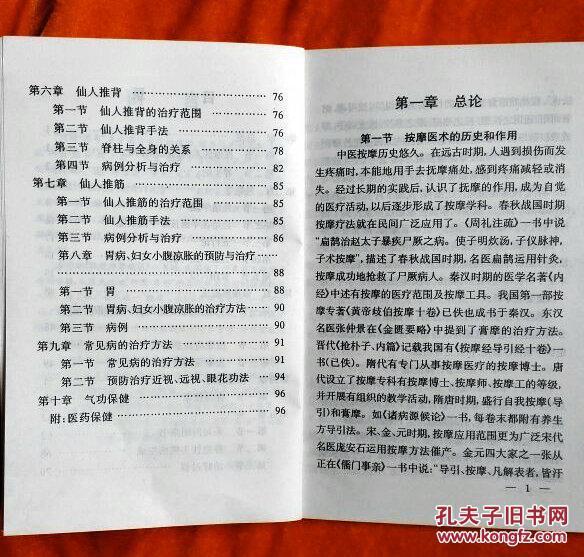 第六章 仙人推背 ………………………… 76
第一节 仙人推背的治疗范围 ………… 76
第二节 仙人推背手法 ………………… 76
第三节 脊柱与全身的关系 …………… 78
第四节 病例分析与治疗 ……………… 82
第七章 仙人推筋 ………………………… 85
第一节 仙人推筋的治疗范围 ………… 85
第二节 仙人推筋手法 ………………… 85
第三节 病例分析与治疗 ……………… 86
第八章 胃病、妇女小腹凉胀的预防与治疗 ……
………………………………………… 88
第一节 胃 ……………………………… 88
第二节 胃病、妇女小腹凉胀的治疗方法 … 90
第三节 病例 …………………………… 90
第九章 常见病的治疗方法 ……………… 91
第一节 常见病的治疗方法 …………… 91
第二节 预防治疗近视、远视、眼花功法 … 94
第十章 气功保健 ………………………… 96
附:医药保健 ……………………………… 96
第一章 总论
第一节 按摩医术的历史和作用
中医按摩历史悠久。在远古时期,人遇到损伤而发
生疼痛时,本能地用手去抚摩痛处,感到疼痛减轻或消
失。经过长期的实践后,认识了抚摩的作用,成为自觉
的医疗活动,以后逐步形成了按摩学科。春秋战国时期
按摩疗法就在民间广泛应用了。《周礼注疏》一书中说
"扁鹊治赵太子暴疾尸厥之病。使子明炊汤,子仪脉神,
子术按摩",描述了春秋战国时期,名医扁鹊运用针灸、
按摩成功地抢救了尸厥病人。秦汉时期的医学名著《内
经》中述有按摩的医疗范围及按摩工具。我国第一部按
摩专著《黄帝歧伯按摩十卷》已佚也成书于秦汉。东汉
名医张仲景在《金匮要略》中提到了膏摩的治疗方法。
晋代《抢朴子、内篇》记载我国有《按摩经导引经十卷》一
书(已佚)。隋代有专门从事按摩医疗的按摩博士。唐
代设立了按摩专科有按摩博士、按摩师、按摩工的等级,
并开展有组织的教学活动,隋唐时期,盛行自我按摩(导
引)和膏摩。如《诸病源候论》一书,每卷末都附有养生
方导引法。宋、金、元时期,按摩应用范围更为广泛宋代
名医庞安石运用按摩方法催产。金元四大家之一张从
正在《儒门事亲》一书中说:"导引、按摩、凡解表者,皆汗
— 1 —
孔夫子旧书网
www.kongfz.com